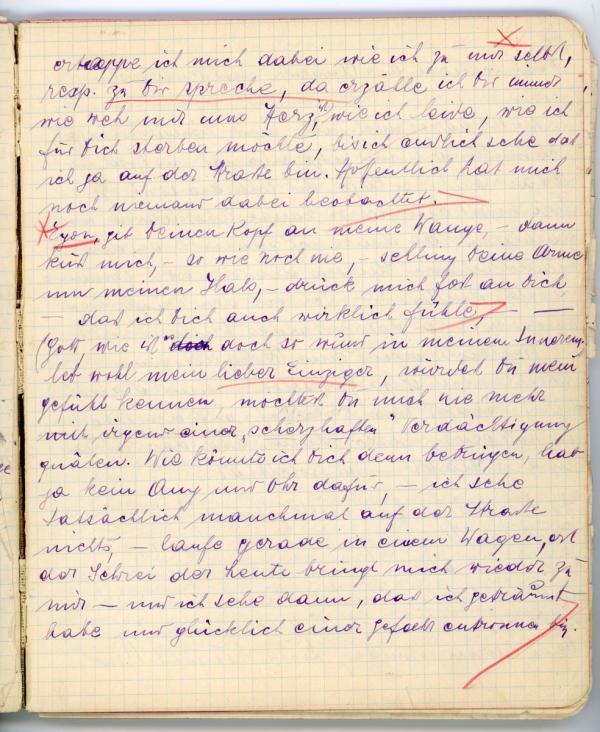 ertappe ich mich dabei wie ich zu mir selbst,
resp. zu Dir spreche, da erzälle ich Dir immer
wie weh mir ums Herz ist, wie ich leide, wie ich
für Dich sterben möchte, bis ich endlich sehe das
ich ja auf der Straße bin. Hofentlich hat mich
noch niemand dabei beobachtet.
gib Deinen Kopf an meine Wange, – dann
küß mich, – so wie noch nie, – schling Deine Arme
um meinen Hals, – drück mich fest an Dich
– das ich Dich auch wirklich fühle, – –
(Gott, wie ist doch so wund in meinem Inneren,
leb wohl mein lieber Einziger, würdest Du mein
gefühl kennen, möchtest Du mich nie mehr
mit irgend einer „scherzhaften" Verdächtigung
quälen. Wie könnte ich Dich denn betrügen, hab
ja kein Aug und Ohr dafür, – ich sehe
tatsächlich manchmal auf der Straße
nichts, – laufe gerade in einem Wagen, erst
der Schrei der Leute bringt mich wieder zu
mir – und ich sehe dann, das ich geträumt
habe und glücklich einer gefahr entronnen bin.